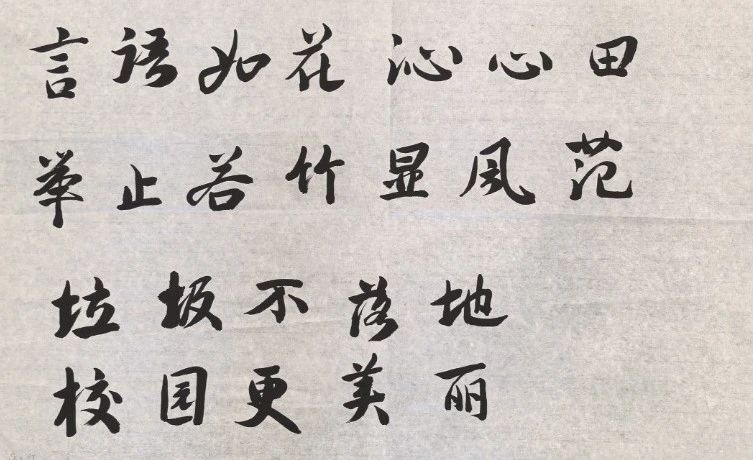 言语如花沁心田
举止若竹显风范
垃圾不落地
校园更美丽